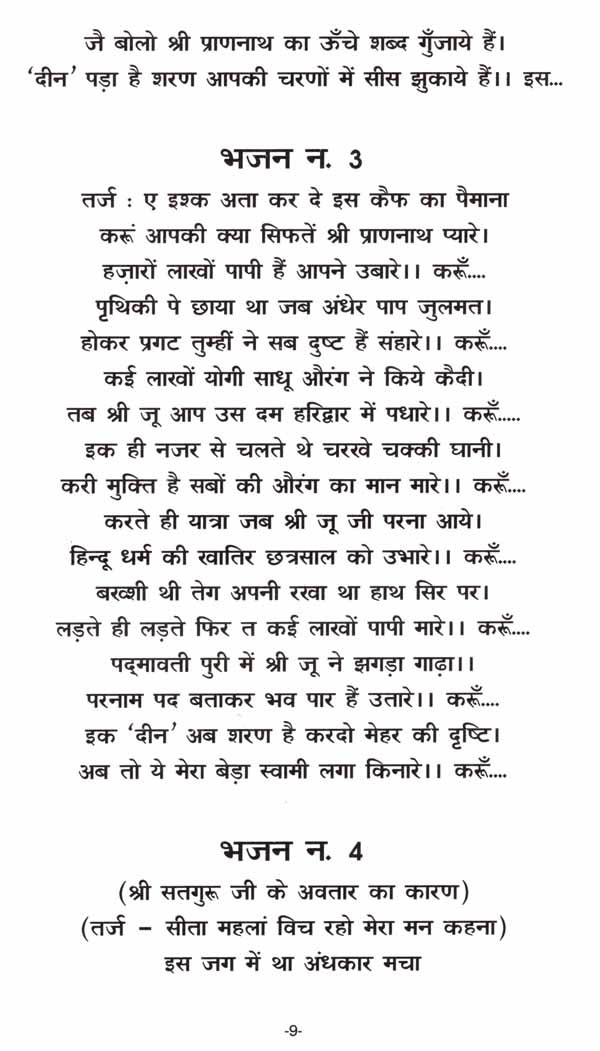 जै बोलो श्री प्राणनाथ का ऊँचे शब्द गुँजाये हैं।
‘दीन’ पड़ा है शरण आपकी चरणों में सीस झुकाये हैं।। इस...
भजन न. 3
तर्ज : ए इश्क अता कर दे इस कैफ का पैमाना
करूं आपकी क्या सिफतें श्री प्राणनाथ प्यारे।
हज़ारों लाखों पापी हैं आपने उबारे।। करूँ....
पृथिकी पे छाया था जब अंधेर पाप जुलमत।
होकर प्रगट तुम्हीं ने सब दुष्ट हैं संहारे।। करूँ....
कई लाखों योगी साधू औरंग ने किये कैदी।
तब श्री जू आप उस दम हरिद्वार में पधारे।। करूँ.....
इक ही नजर से चलते थे चरखे चक्की घानी।
करी मुक्ति है सबों की औरंग का मान मारे।। करूँ....
करते ही यात्रा जब श्री जू जी परना आये।
हिन्दू धर्म की खातिर छत्रसाल को उभारे।। करूँ....
बख्शी थी तेग अपनी रखा था हाथ सिर पर।
लड़ते ही लड़ते फिर त कई लाखों पापी मारे।। करूँ....
पद्मावती पुरी में श्री जू ने झगड़ा गाढ़ा।।
परनाम पद बताकर भव पार हैं उतारे।। करूँ....
इक ‘दीन’ अब शरण है करदो मेहर की दृष्टि।
अब तो ये मेरा बेड़ा स्वामी लगा किनारे।। करूँ....
भजन न. 4
(श्री सतगुरू जी के अवतार का कारण)
(तर्ज – सीता महलां विच रहो मेरा मन कहना)
इस जग में था अंधकार मचा
-9-